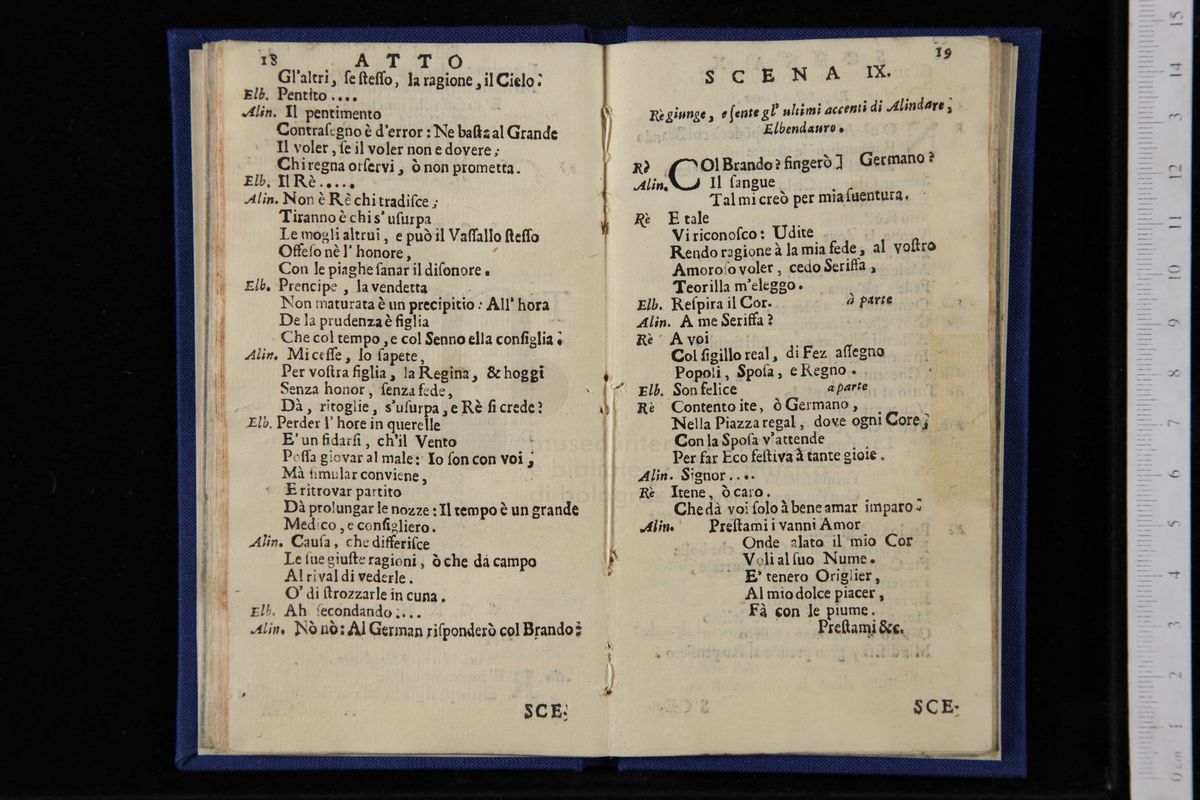 18 ATTO
Gl'altri, ſe ſteſſo, la ragione, il Cielo.
Elb. Pentito....
Alin. Il pentimento
Contraſegno è d'error : Ne baſta al Grande
Il voler, ſe il voler non e dovere;
Chi regna or ſervi, ò non prometta.
Elb. Il Rè.....
Alin. Non è Rè chi tradiſce;
Tiranno è chi s' uſurpa
Le mogli altrui, e può il Vaſſallo ſteſſo
Offeſo nè l' honore,
Con le piaghe ſanar il diſonore.
Elb. Prencipe, la vendetta
Non maturata è un precipitio : All' hora
De la prudenza è figlia
Che col tempo, e col Senno ella conſiglia.
Alin. Mi ceſſe, lo ſapete,
Per voſtra figlia, la Regina, & hoggi
Senza honor, ſenza fede,
Dà, ritoglie, s'uſurpa, e Rè ſi crede?
Elb. Perder l' hore in querelle
E' un fidarſi, ch'il Vento
Poſſa giovar al male: Io ſon con voi;
Mà ſimular conviene,
E ritrovar partito
Dà prolungar le nozze : Il tempo è un grande
Medico, e conſigliero.
Alin. Cauſa, che differiſce
Le ſue giuſte ragioni, ò che dà campo
Al rival di vederle.
O' di ſtrozzarle in cuna.
Elb. Ah ſecondando....
Alin. Nò nò: Al German riſponderò col Brando:
SCE-
19
SCENA IX.
Rè giunge, e ſente gl' ultimi accenti di Alindare,
Elbendauro.
Rè COl Brando? fingerò ] Germano?
Alin. Il ſangue
Tal mi creò per mia ſuentura.
Rè E tale
Vi riconoſco: Udite
Rendo ragione à la mia fede, al voſtro
Amoroſo voler, cedo Seriffa,
Teorilla m'eleggo.
Elb. Reſpira il Cor. à parte
Alin. A me Seriffa?
Rè A voi
Col ſigillo real, di Fez aſſegno
Popoli, Spoſa, e Regno.
Elb. Son felice a parte
Rè Contento ite, ò Germano,
Nella Piazza regal, dove ogni Core;
Con la Spoſa v'attende
Per far Eco feſtiva à tante gioie.
Alin. Signor....
Rè Itene, ò caro.
Che dà voi ſolo à bene amar imparo.
Alin. Preſtami i vanni Amor
Onde alato il mio Cor
Voli al ſuo Nume.
E' tenero Origlier,
Al mio dolce piacer,
Fà con le piume.
Preſtami &c.
SCE-